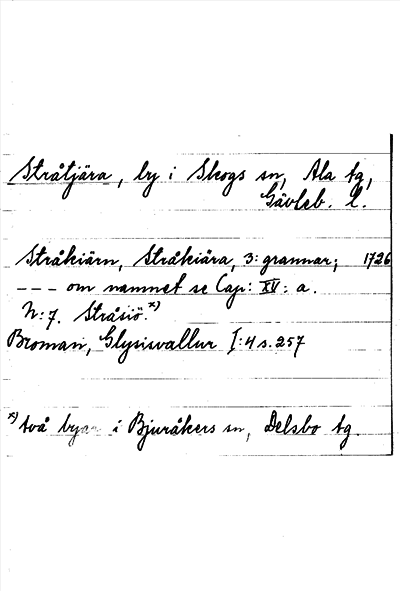 Stråtjära, by i Skogs sn, Ala tg,
Gävleb. l.
Stråkiärn, Stråkiära, 3: grannar; 1726
--- om namnet se Cap: XV: a.
N: 7. Stråsiö.x)
Broman, Glysisvallur I:4 s. 257
x) två byar i Bjuråkers sn, Delsbo tg.